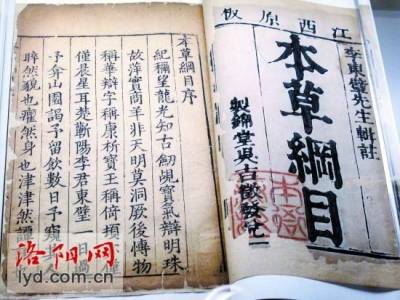 江西原板
李東璧先生輯註
本草綱目
製錦堂
本草綱目序
紀稱望龍光知古劍覘寶氣辯明珠
故萍實商羊非天明莫洞厥後博物
稱華辯字稱康析寶玉稱倚頓
僅晨星耳楚蘄陽李君東璧一
予弇山園謁予留飲數日予窺
睟然貌也癯然身也津津然譚
洛阳网
lyd.com.cn